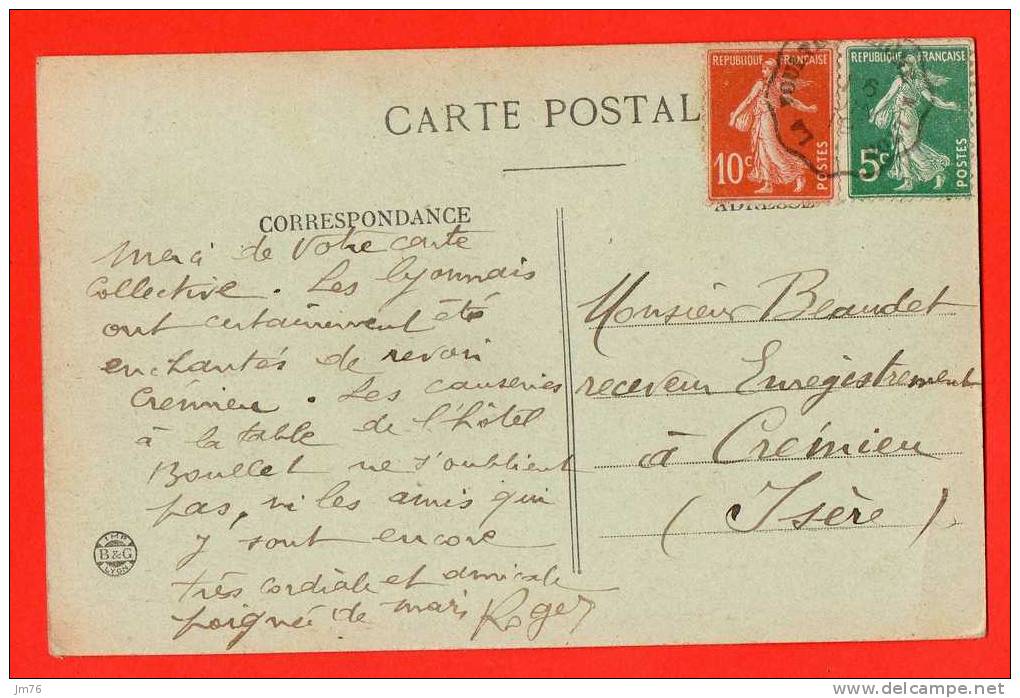 CARTE POSTAL
REPUBLIQUE FRANÇAISE
10c
POSTES
REPUBLIQUE FRANÇAISE
5c
POSTES
LA TOUR
ADRESSE
CORRESPONDANCE
Merci de votre carte
collective. Les lyonnais
ont certainement été
enchantés de revoir
Crémieu. Les causeries
à la table de l'hôtel
Boullet ne s'oublient
pas, ni les amis qui
y sont encore
très cordiale et amicale
poignée de main Roger
Monsieur Beaudet
receveur Enregistrement
à Crémieu
(Isère).
IMP
B&G
LYON
jm76
delcampe.net